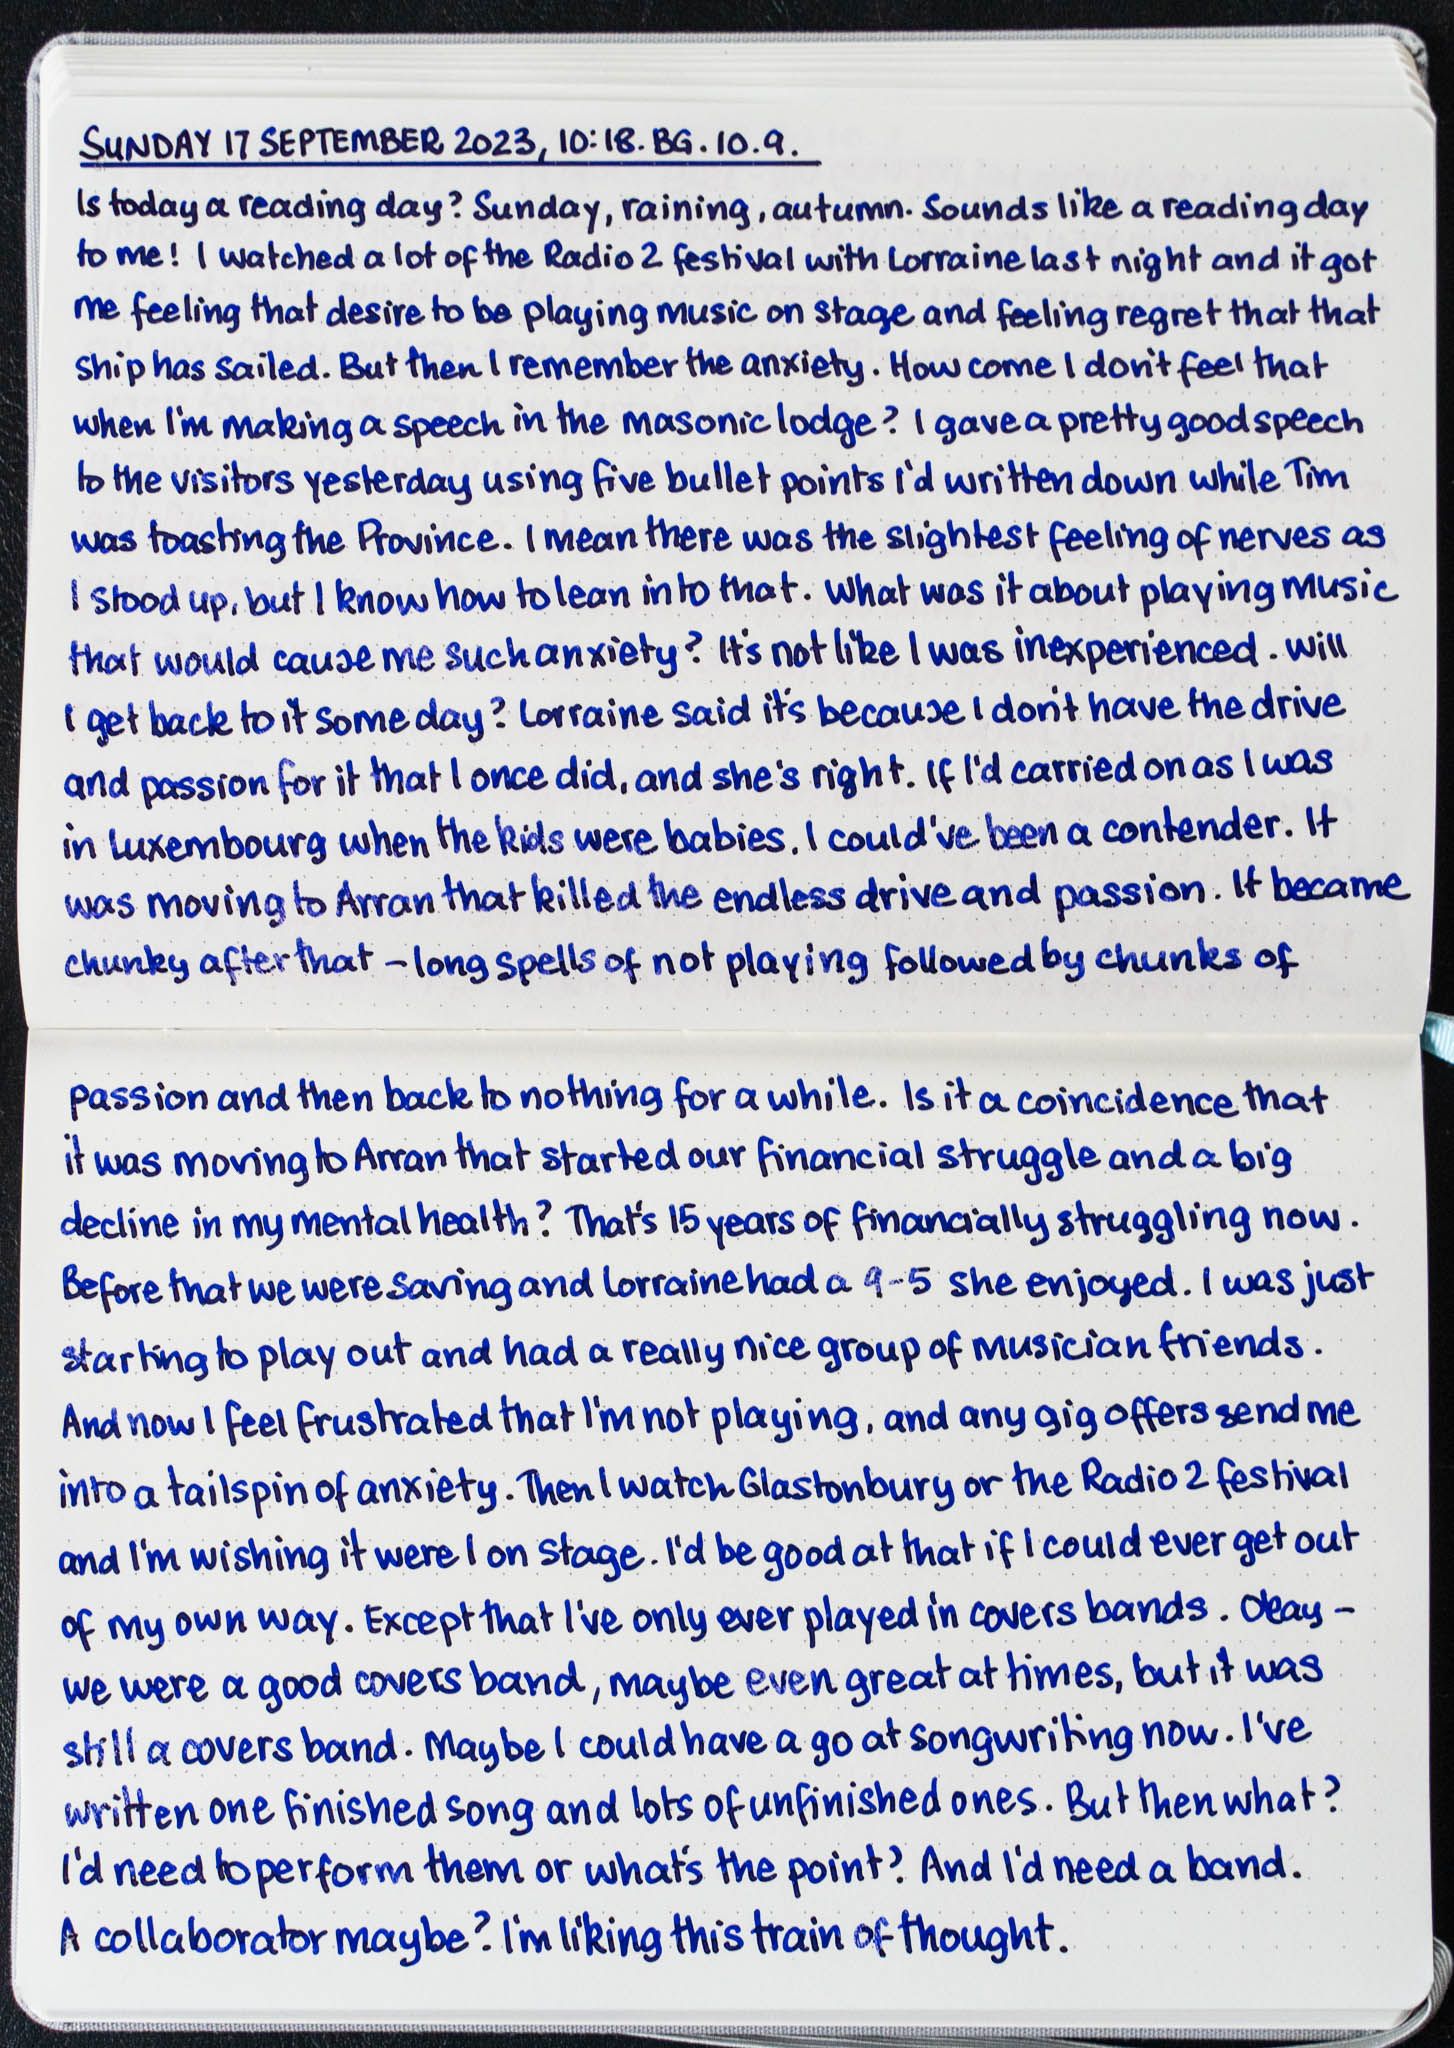 SUNDAY 17 SEPTEMBER 2023, 10:18. BG. 10.9.
Is today a reading day? Sunday, raining, autumn. Sounds like a reading day
to me! I watched a lot of the Radio 2 festival with Lorraine last night and it got
me feeling that desire to be playing music on stage and feeling regret that that
ship has sailed. But then I remember the anxiety. How come I don't feel that
when I'm making a speech in the masonic lodge? I gave a pretty good speech
to the visitors yesterday using five bullet points I'd written down while Tim
was toasting the Province. I mean there was the slightest feeling of nerves as
I stood up, but I know how to lean into that. What was it about playing music
that would cause me such anxiety? It's not like I was inexperienced. Will
I get back to it some day? Lorraine said it's because I don't have the drive
and passion for it that I once did, and she's right. If I'd carried on as I was
in Luxembourg when the kids were babies, I could've been a contender. It
was moving to Arran that killed the endless drive and passion. It became
chunky after that – long spells of not playing followed by chunks of
passion and then back to nothing for a while. Is it a coincidence that
it was moving to Arran that started our financial struggle and a big
decline in my mental health? That's 15 years of financially struggling now.
Before that we were saving and Lorraine had a 9-5 she enjoyed. I was just
starting to play out and had a really nice group of musician friends.
And now I feel frustrated that I'm not playing, and any gig offers send me
into a tailspin of anxiety. Then I watch Glastonbury or the Radio 2 festival
and I'm wishing it were I on stage. I'd be good at that if I could ever get out
of my own way. Except that I've only ever played in covers bands. Okay –
we were a good covers band, maybe even great at times, but it was
still a covers band. Maybe I could have a go at songwriting now. I've
written one finished song and lots of unfinished ones. But then what?
I'd need to perform them or what's the point? And I'd need a band.
A collaborator maybe? I'm liking this train of thought.